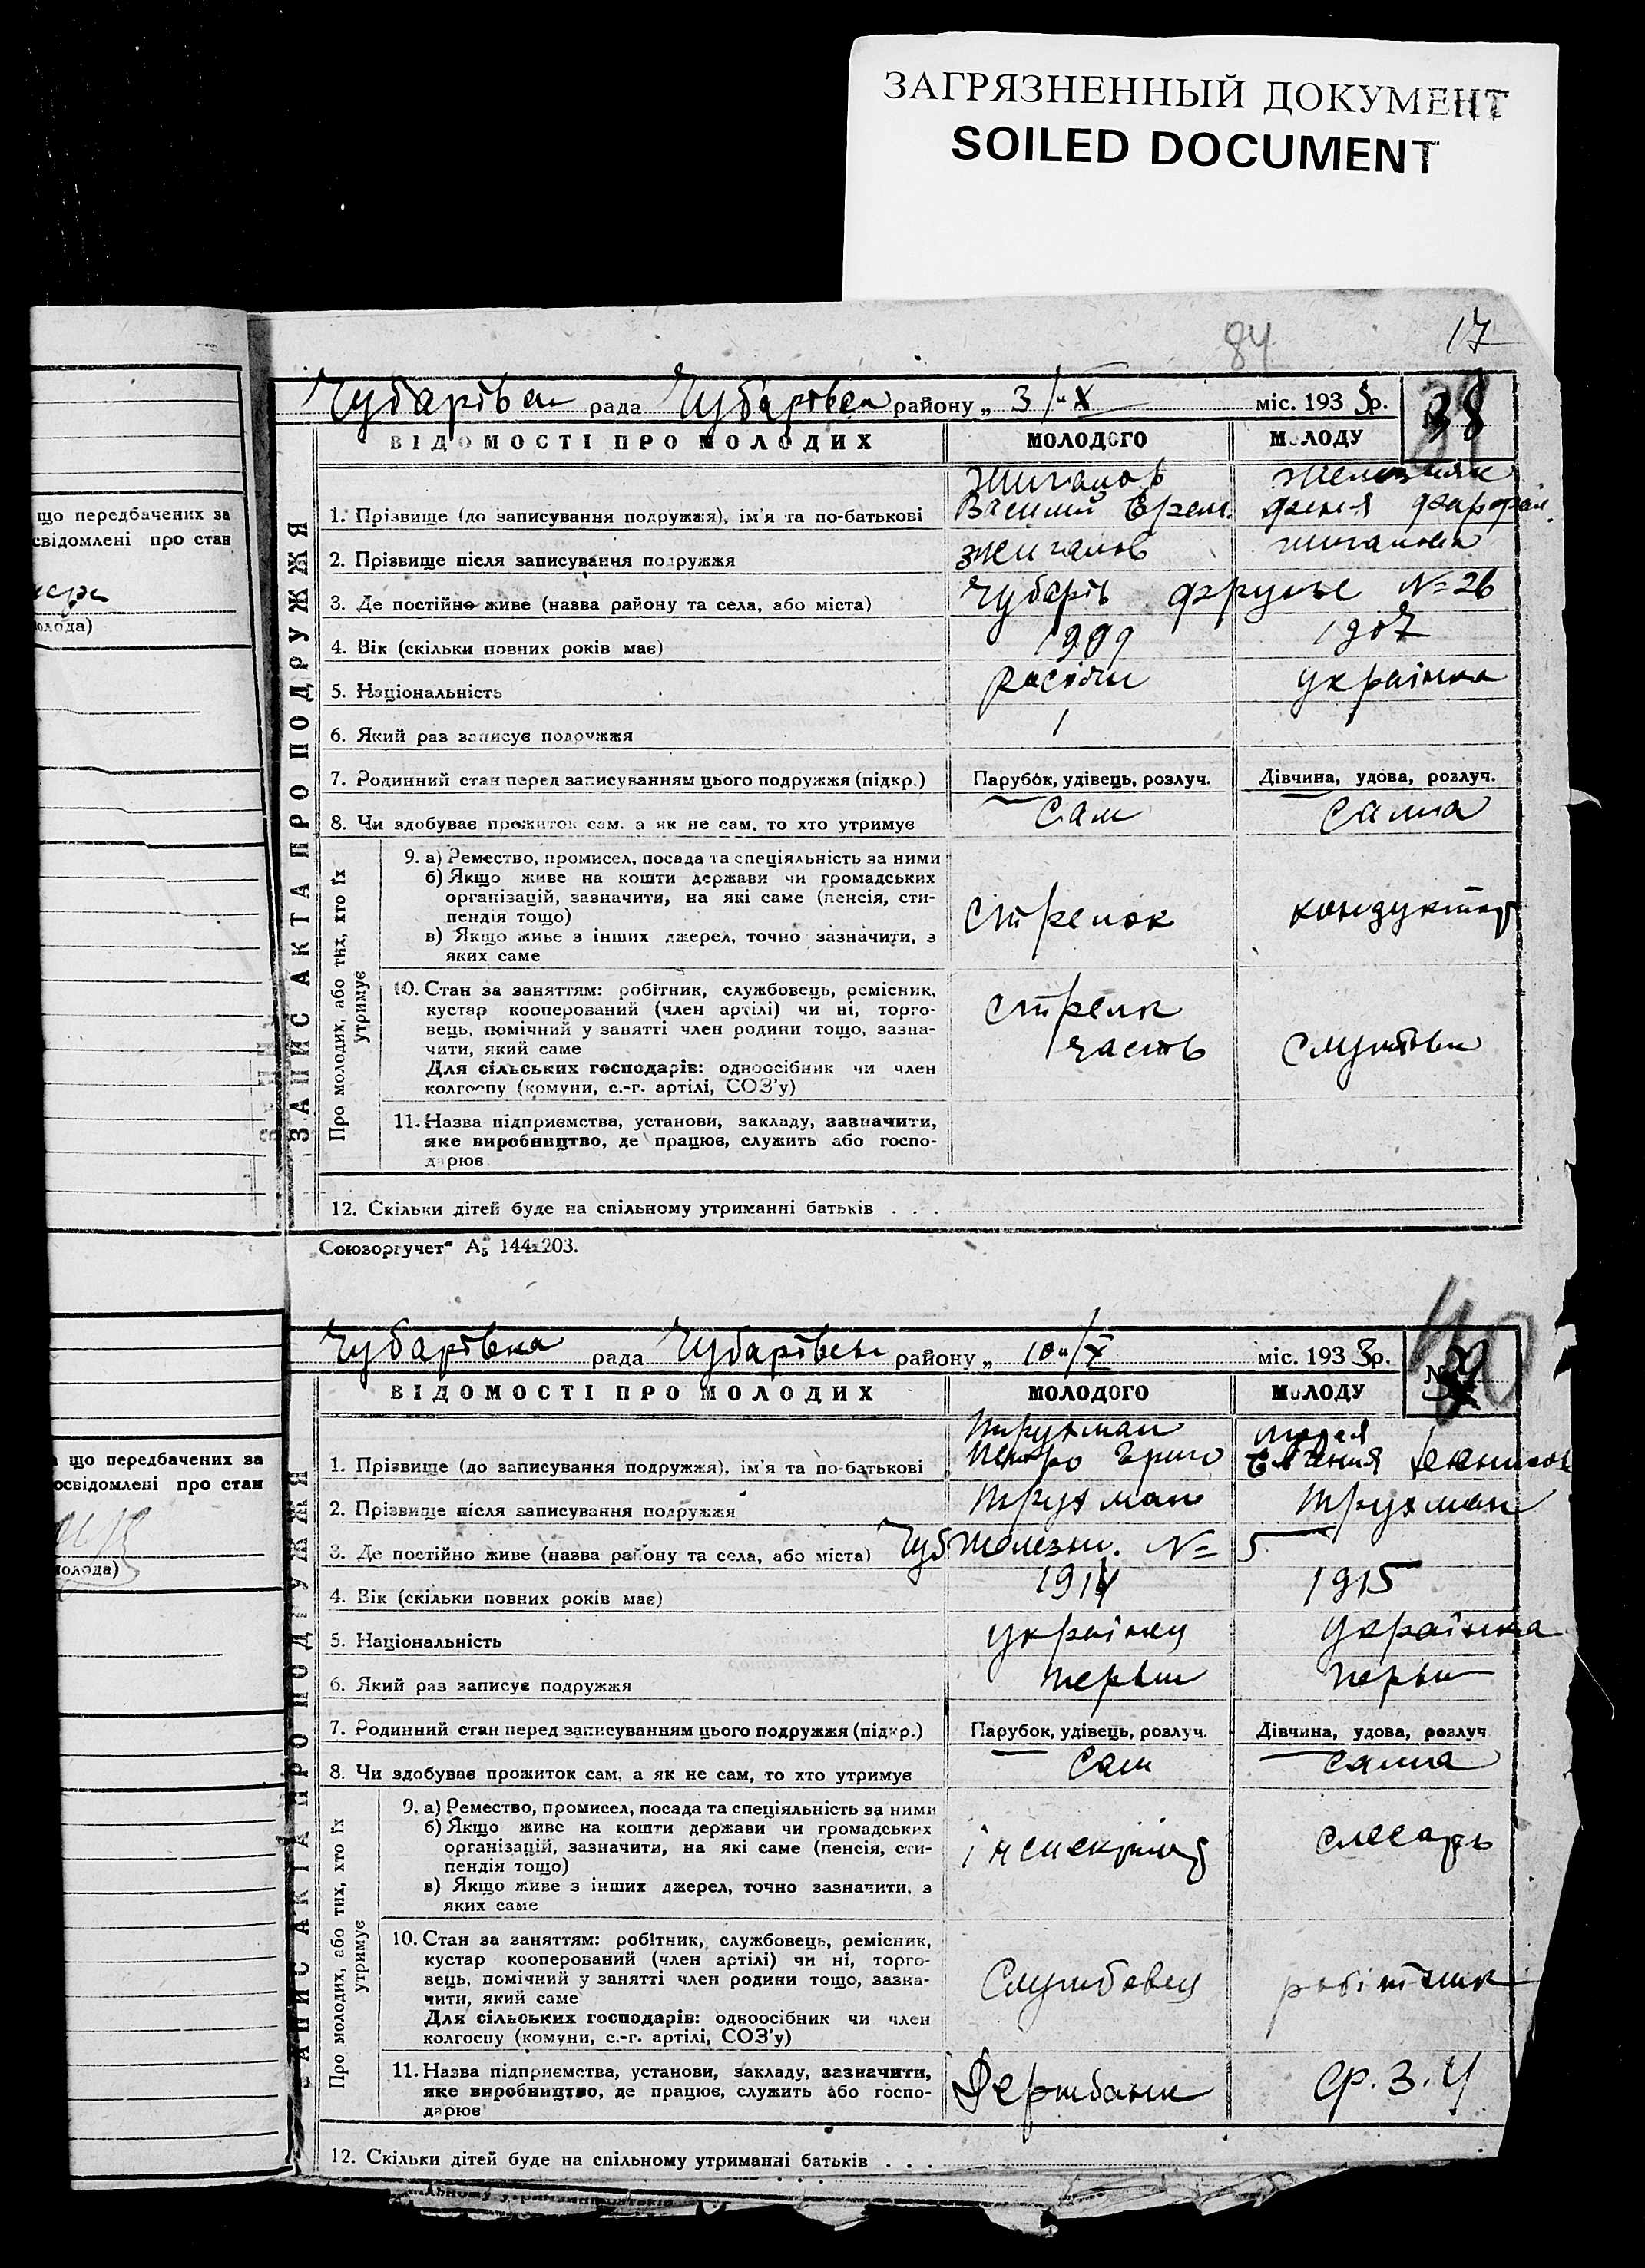 ЗАГРЯЗНЕННЫЙ ДОКУМЕНТ
SOILED DOCUMENT
84
17
що передбачених за
свідомлені про стан
олода)
ЗАПИС АКТА ПРО ПОДРУЖЖЯ
Чубарівсь рада Чубарівсь району „ 3/"X міс. 193 3р.
38
ВІДОМОСТІ ПРО МОЛОДИХ МОЛОДОГО МОЛОДУ
Жиганов Железняк
1. Прізвище (до записування подружжя), ім'я та по-батькові Василий Ерем.
2. Прізвище після записування подружжя Жиганов Жиганова
3. Де постійно живе (назва району та села, або міста) Чубарів Фрунзе № 26
4. Вік (скільки повних років має) 1909 1907
5. Національність українка
6. Який раз записує подружжя 1
7. Родинний стан перед записуванням цього подружжя (підкр.) Парубок, удівець, розлуч. Дівчина, удова, розлуч.
8. Чи здобуває прожиток сам, а як не сам, то хто утримує Сам Сама
Про молодих, або тих, хто їх утримує
9. а) Ремество, промисел, посада та спеціяльність за ними
б) Якщо живе на кошти держави чи громадських
організацій, зазначити, на які саме (пенсія, сти-
пендія тощо)
в) Якщо живе з інших джерел, точно зазначити, з
яких саме
Стрелок кондуктор
10. Стан за заняттям: робітник, службовець, ремісник,
кустар кооперований (член артілі) чи ні, торго-
вець, помічний у занятті член родини тощо, зазна-
чити, який саме
Для сільських господарів: одноосібник чи член
колгоспу (комуни, с.-г. артілі, СОЗ'у)
Стрелк
часть
11. Назва підприємства, установи, закладу, зазначити,
яке виробництво, де працює, служить або госпо-
дарює
12. Скільки дітей буде на спільному утриманні батьків . . .
„Союзоргучет“ А5 144x203.
що передбачених за
освідомлені про стан
олода)
ЗАПИС АКТА ПРО ПОДРУЖЖЯ
Чубарівка рада Чубарівсь району „ 10"/X міс. 193 3р.
ВІДОМОСТІ ПРО МОЛОДИХ МОЛОДОГО МОЛОДУ
Трухман
1. Прізвище (до записування подружжя), ім'я та по-батькові Петро Григо Евгения
2. Прізвище після записування подружжя Трухман Трухман
3. Де постійно живе (назва району та села, або міста) Чуб Железн. № 5
4. Вік (скільки повних років має) 1914 1915
5. Національність українец українка
6. Який раз записує подружжя первш первш
7. Родинний стан перед записуванням цього подружжя (підкр.) Парубок, удівець, розлуч. Дівчина, удова, розлуч
8. Чи здобуває прожиток сам, а як не сам, то хто утримує Сам Сама
Про молодих, або тих, хто їх утримує
9. а) Ремество, промисел, посада та спеціяльність за ними
б) Якщо живе на кошти держави чи громадських
організацій, зазначити, на які саме (пенсія, сти-
пендія тощо)
в) Якщо живе з інших джерел, точно зазначити, з
яких саме
інспектор слесарь
10. Стан за заняттям: робітник, службовець, ремісник,
кустар кооперований (член артілі) чи ні, торго-
вець, помічний у занятті член родини тощо, зазна-
чити, який саме
Для сільських господарів: одноосібник чи член
колгоспу (комуни, с.-г. артілі, СОЗ'у)
Службовец робітник
11. Назва підприємства, установи, закладу, зазначити,
яке виробництво, де працює, служить або госпо-
дарює
Держбанк Ф.З.У
12. Скільки дітей буде на спільному утриманні батьків . . .